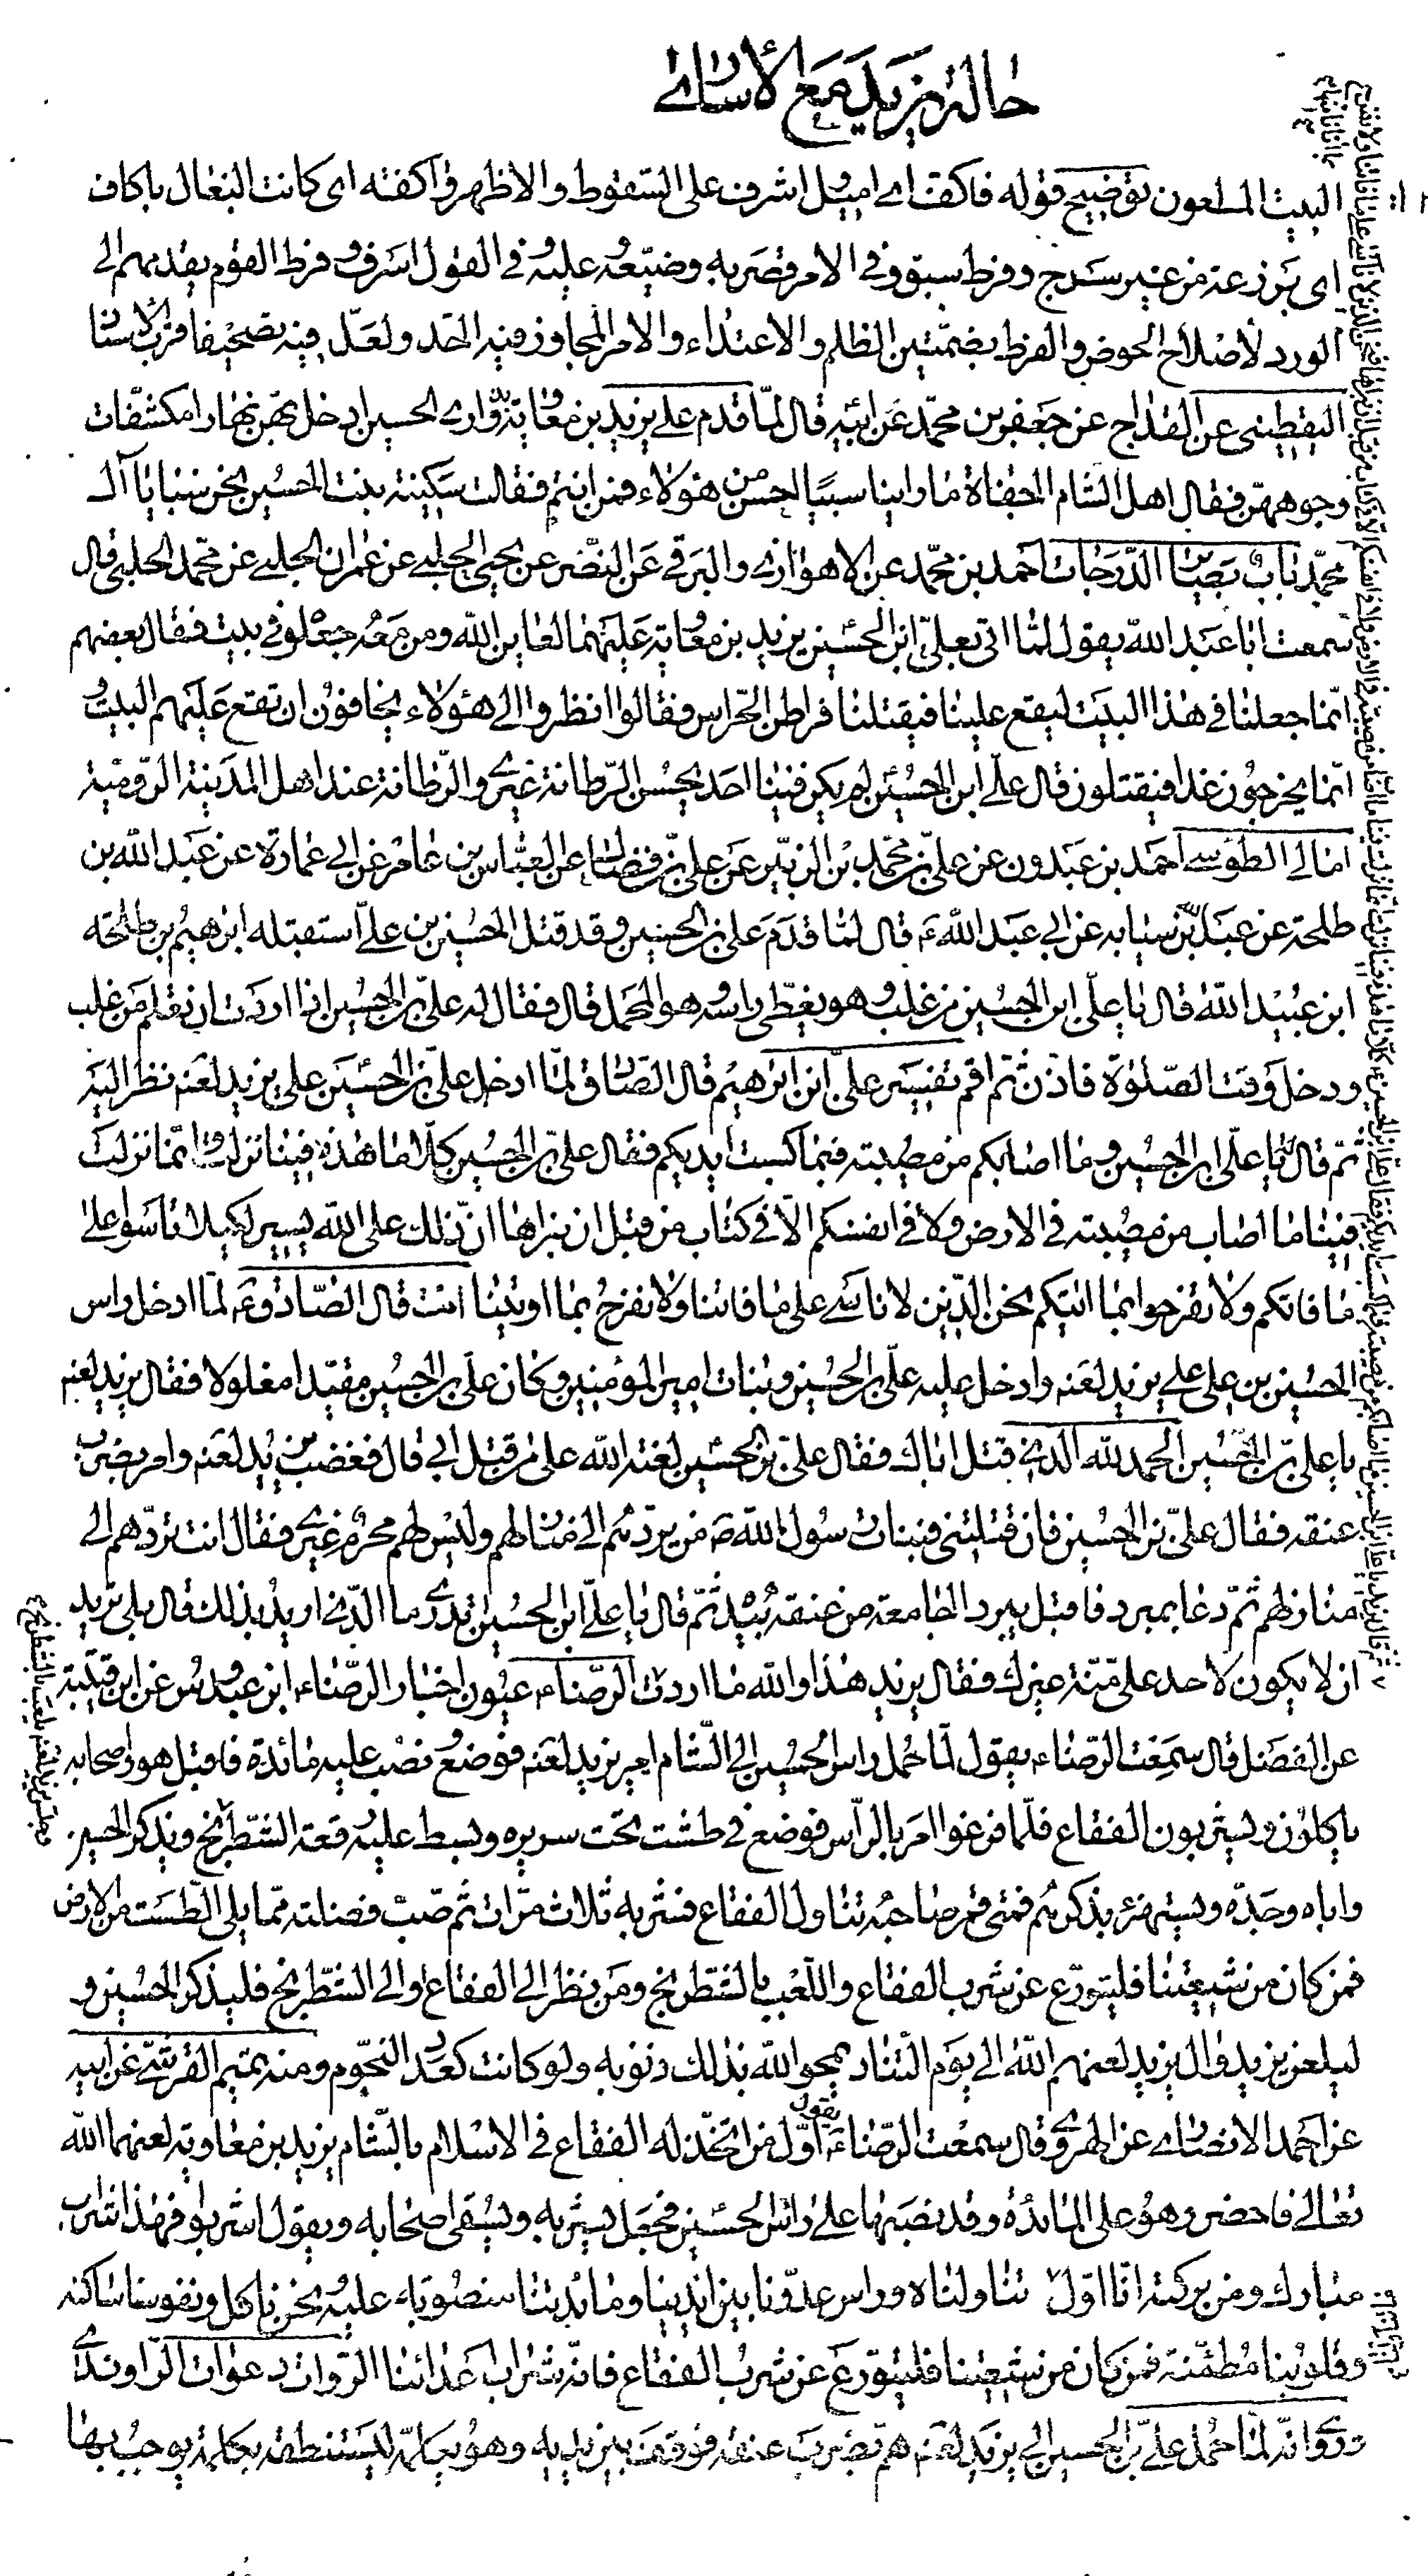 حالة يزيد مع الأسارى
البيت الملعون توضيح قوله فاكفت اى اميل واشرف على السقوط والاظهر واكفته اى كانت البغال باكاف
اى برزعة من غير سرج وفرط سبق وفى الامر قصر به وضيعه وعليه فى القول اسرف وفرط القوم يقدمهم الى
الورد لاصلاح الحوض والفرط بضمتين الظلم والاعتداء والامر المجاوز فيه الحد ولعل فيه تصحيفا قرب الاسناد
اليقطينى عن القداح عن جعفر بن محمد عن ابيه قال لما قدم على يزيد بن معوية بذرارى الحسين ادخل بهن نهارا مكشفات
وجوههن فقال اهل الشام الجفاة ما راينا سبيا احسن من هؤلاء فمن انتم فقالت سكينة بنت الحسين نحن سبايا آل
محمد باب بصائر الدرجات احمد بن محمد عن الاهوازى والبرقى عن النضر عن يحيى الحلبى عن عمران الحلبى عن محمد الحلبى قال
سمعت ابا عبد الله يقول لما اتى بعلى ابن الحسين يزيد بن معوية عليهما لعاين الله ومن معه جعلوا فى بيت فقال بعضهم
انما جعلنا فى هذا البيت ليقع علينا فيقتلنا فراطن الحراس فقالوا انظروا الى هؤلاء يخافون ان تقع عليهم البيت و
انما يخرجون غدا فيقتلون قال على ابن الحسين لم يكن فينا احد يحسن الرطانة غيرى والرطانة عند اهل المدينة الرومية
امالى الطوسى احمد بن عبدون عن على بن محمد بن الزبير عن على بن فضال عن العباس بن عامر عن ابى عمارة عن عبد الله بن
طلحة عن عبد الله بن سيابه عن ابى عبد الله ع قال لما قدم على بن الحسين وقد قتل الحسين بن على استقبله ابرهيم بن طلحة
ابن عبيد الله قال يا على ابن الحسين من غلب وهو يغطى راسه وهو فى المحمل قال فقال له على بن الحسين اذا اردت ان تعلم من غلب
ودخل وقت الصلوة فاذن ثم اقم تفسير على ابن ابرهيم قال الصادق لما ادخل على بن الحسين على يزيد لعنه نظر اليه
ثم قال له يا على ابن الحسين وما اصابكم من مصيبة فبما كسبت ايديكم فقال على بن الحسين كلا ما هذه فينا نزلت وانما نزلت
فينا ما اصاب من مصيبة فى الارض ولا فى انفسكم الا فى كتاب من قبل ان نبراها ان ذلك على الله يسير لكيلا تاسوا على
ما فاتكم ولا تفرحوا بما اتيكم نحن الذين لا ناسى على ما فاتنا ولا نفرح بما اوتينا قال الصادق ع لما ادخل راس
الحسين بن على على يزيد لعنه وادخل عليه على بن الحسين وبنات امير المؤمنين وكان على بن الحسين مقيدا مغلولا فقال يزيد لعنه
يا على بن الحسين الحمد لله الذى قتل اباك فقال على بن الحسين لعنة الله على من قتل ابى قال فغضب يزيد لعنه وامر بضرب
عنقه فقال على بن الحسين فان قتلتنى فبنات رسول الله ص من يردهم الى منازلهم وليس لهم محرم غيرى فقال انت تردهم الى
منازلهم ثم دعا بمبرد فاقبل يبرد الجامعة من عنقه بيده ثم قال يا على ابن الحسين تدرى ما الذى اريد بذلك قال بلى تريد
ان لا يكون لاحد على منة غيرك فقال يزيد هذا والله ما اردت عيون اخبار الرضا ابن عبدوس عن ابن قتيبة
عن الفضل قال سمعت الرضا ع يقول لما حمل راس الحسين الى الشام امر يزيد لعنه فوضع ونصب عليه مائدة فاقبل هو واصحابه
ياكلون ويشربون الفقاع فلما فرغوا امر بالراس فوضع فى طشت تحت سريره وبسط عليه رقعة الشطرنج ويذكر الحسين
واباه وجده ويستهزئ بذكرهم فمتى قمر صاحبه تناول الفقاع فشربه ثلاث مرات ثم صب فضلته مما يلى الطست من الارض
فمن كان من شيعتنا فليتورع عن شرب الفقاع واللعب بالشطرنج ومن نظر الى الفقاع والى الشطرنج فليذكر الحسين و
ليلعن يزيد وال يزيد لعنهم الله الى يوم التناد يمحو الله بذلك ذنوبه ولو كانت كعدد النجوم ومنه تميم القرشى عن ابيه
عن احمد الانصارى عن الهروى قال سمعت الرضا ع يقول اول من اتخذ له الفقاع فى الاسلام بالشام يزيد بن معاوية لعنهما الله
تعالى فاحضر وهو على المائدة وقد نصبها على راس الحسين فجعل يشربه ويسقى اصحابه ويقول اشربوا فهذا شراب
مبارك ومن بركته انا اول تناولناه وراس عدونا بين ايدينا ومائدتنا منصوبة عليه نحن ناكل ونفوسنا ساكنه
وقلوبنا مطمئنة فمن كان من شيعتنا فليتورع عن شرب الفقاع فانه شراب اعدائنا دعوات الراوندى
روى انه لما حمل على بن الحسين الى يزيد لعنه هم بضرب عنقه فوقفه بين يديه وهو يكلمه ليستنطقه بكلمة يوجب بها
فجلس يزيد لعنه يلعب بالشطرنج